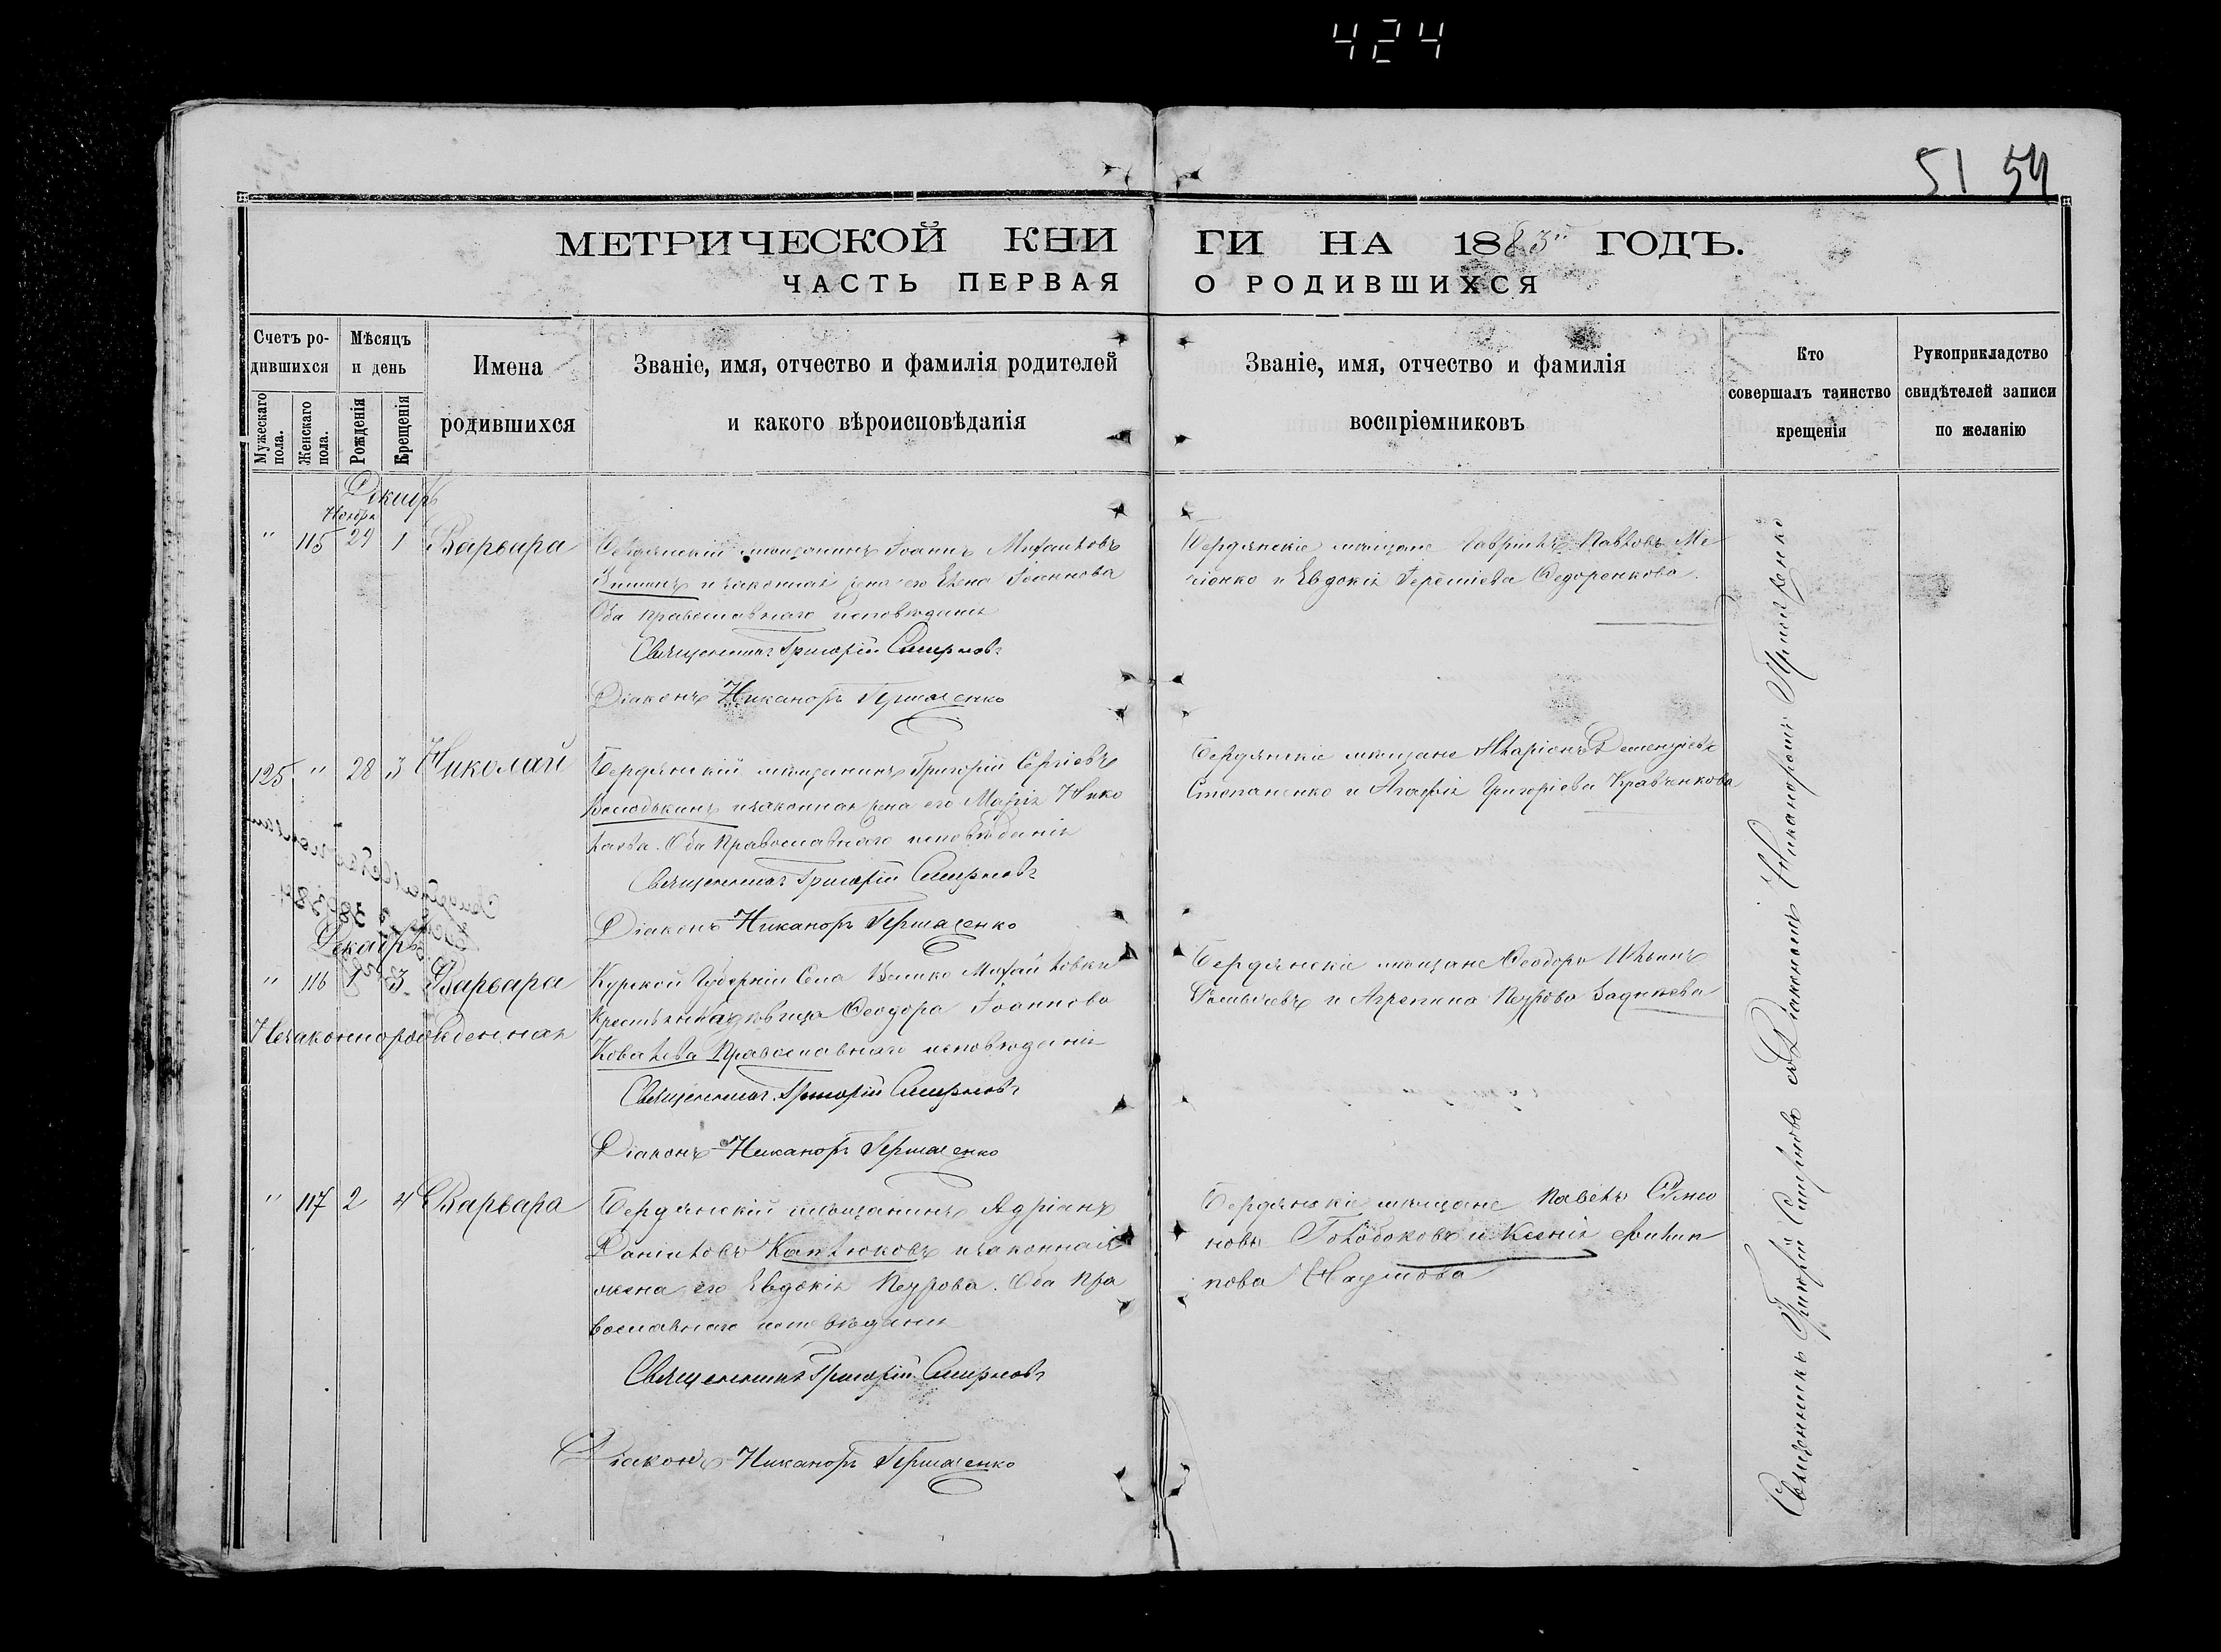 424
51 54
МЕТРИЧЕСКОЙ КНИГИ НА 1883 ГОДЪ.
ЧАСТЬ ПЕРВАЯ О РОДИВШИХСЯ
Счетъ родившихся
Мужескаго пола.
Женскаго пола.
Мѣсяцъ и день
Рожденія
Крещенія
Имена
родившихся
Званіе, имя, отчество и фамилія родителей
и какого вѣроисповѣданія
Званіе, имя, отчество и фамилія
воспріемниковъ
Кто
совершалъ таинство
крещенія
Рукоприкладство
свидѣтелей записи
по желанію
Декабрь
Ноября
" 115 29 1 Варвара
Бердянскій мѣщанинъ Іоаннъ Михаиловъ
и законная жена его Елена Іоаннова
Оба православнаго исповѣданія
Священникъ Григорій Смирновъ
Діаконъ Никаноръ
Бердянскіе мѣщане Гавріилъ Павловъ Ме
ченко и Евдокія Іереміева Федоренкова.
125 " 28 3 Николай
Бердянскій мѣщанинъ Григорій Сергіевъ
Володькинъ и законная жена его Марія Нико
лаева. Оба Православнаго исповѣданія
Священникъ Григорій Смирновъ
Діаконъ Никаноръ
Бердянскіе мѣщане Иларіонъ Дементіевъ
Степаненко и Агафія Григоріева Кравченкова
Декабрь
" 116 1 3 Варвара
Незаконнорожденная
Курской Губерніи Села Велико Михайловки
Крестьянка дѣвица Феодора Іоаннова
Ковалева Православнаго исповѣданія
Священникъ Григорій Смирновъ
Діаконъ Никаноръ
Бердянскіе мѣщане Феодоръ Ильинъ
и Агрепина Петрова
" 117 2 4 Варвара
Бердянскій мѣщанинъ Адріанъ
Даніиловъ Каплюковъ и законная
жена его Евдокія Петрова. Оба Пра
вославнаго исповѣданія
Священникъ Григорій Смирновъ
Діаконъ Никаноръ
Бердянскіе мѣщане Павелъ Симео
новъ Голобоковъ и Ксенія Филип
пова Наумова
Священникъ Григорій Смирновъ съ Діакономъ Никаноромъ